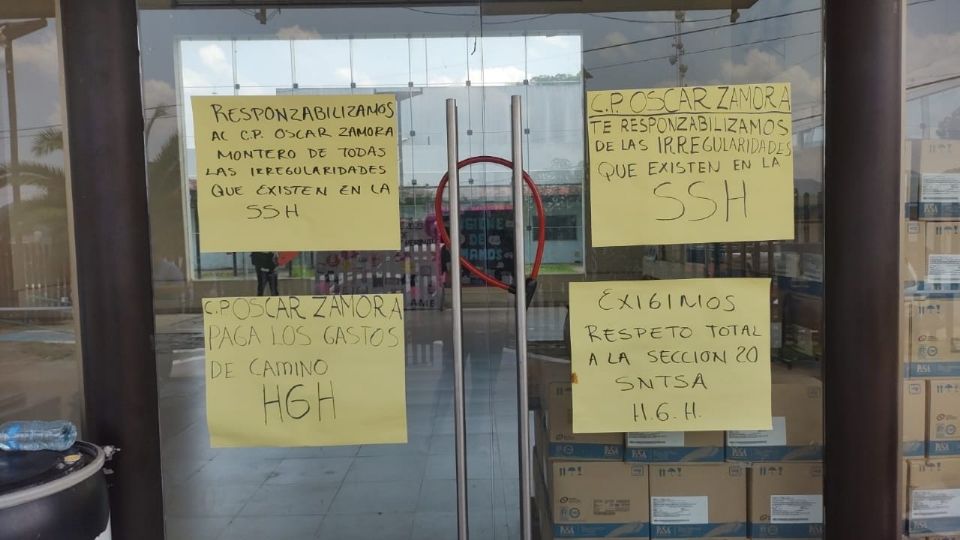 RESPONZABILIZAMOS
AL C.P. OSCAR ZAMORA
MONTERO DE TODAS
LAS IRREGULARIDADES
QUE EXISTEN EN LA
SSH
C.P. OSCAR ZAMORA
TE RESPONZABILIZAMOS
DE LAS IRREGULARIDADES
QUE EXISTEN EN LA
SSH
C.P. OSCAR ZAMORA
PAGA LOS GASTOS
DE CAMINO
HGH
EXIGIMOS
RESPETO TOTAL
A LA SECCION 20
SNTSA
H.G.H.
PiSA
PiSA
PiSA
PiSA